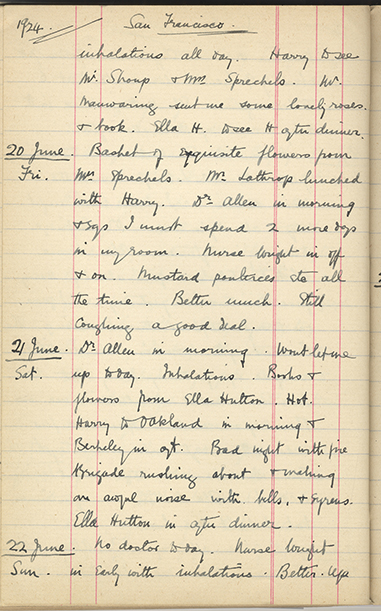 1924. San Francisco.
inhalations all day. Harry to see
Mr. Shoup & Mrs Sprechels. Mr.
Manwaring sent me some lovely roses.
& book. Ella H. to see H after dinner.
20 June. Basket of exquisite flowers from
Fri. Mrs Sprechels. Mr. Lathrop lunched
with Harry. Dr. Allen in morning
& says I must spend 2 more days
in my room. Nurse Wright in off
& on. Mustard poultices etc all
the time. Better much. Still
coughing a good deal.
21 June. Dr Allen in morning. Wont let me
Sat. up today. Inhalations. Books &
flowers from Ella Hutton. Hot.
Harry to Oakland in morning &
Berkeley in aft. Bad night with fire
Brigade rushing about & making
an awful noise with bells, & Syrens.
Ella Hutton in after dinner.
22 June. No doctor to day. Nurse Wright
Sun. in early with inhalations. Better. Up